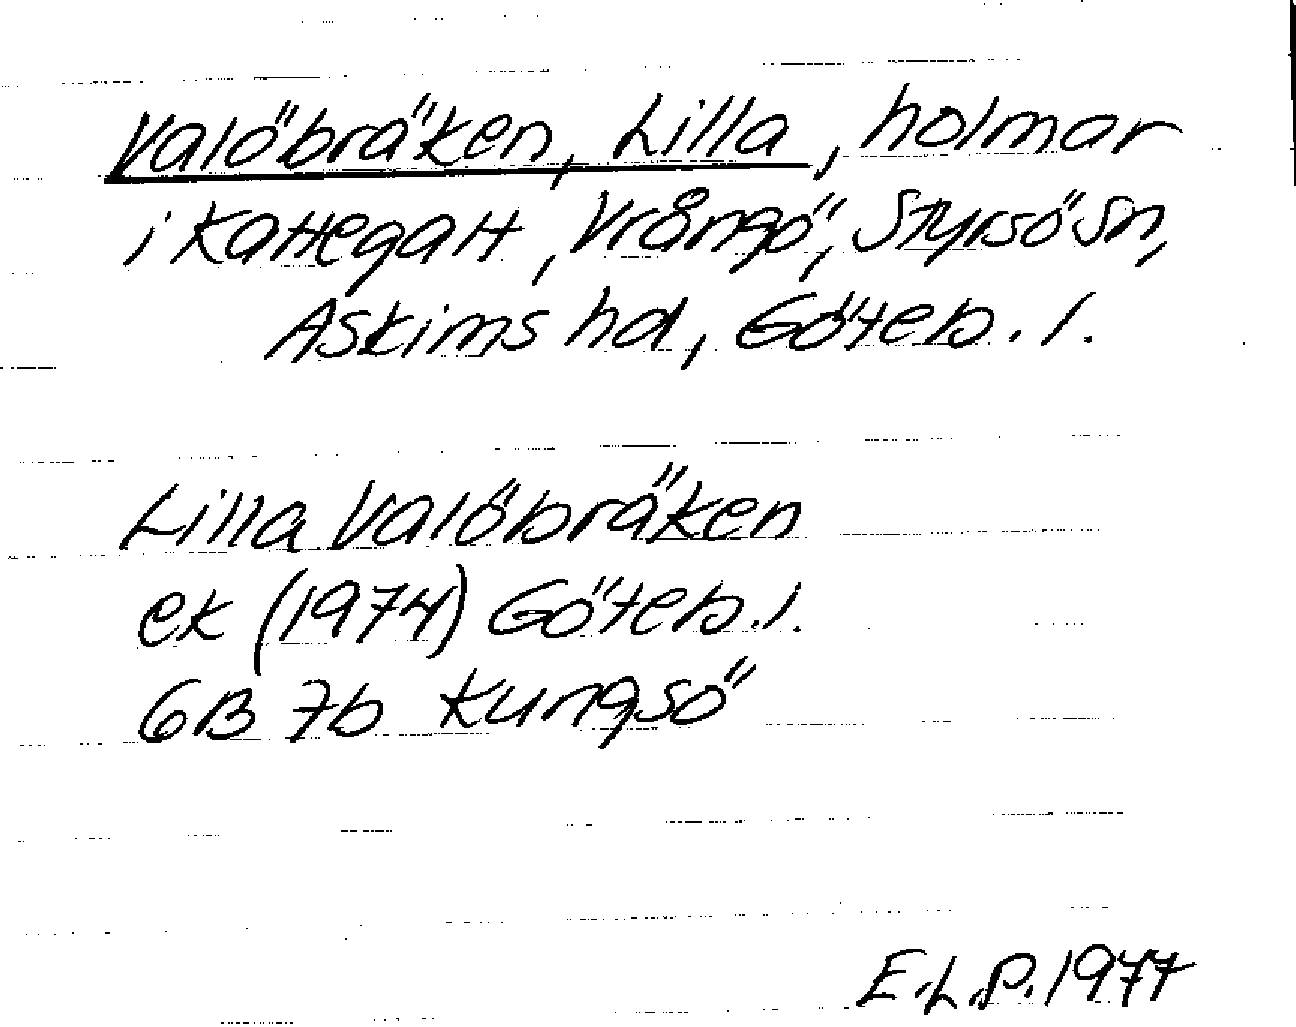 Valöbräken, Lilla, holmar
i Kattegatt, Vrångö, Styrsö sn,
Askims hd, Göteb. l.
Lilla Valöbräken
ek (1974) Göteb. l.
6B 7b Kungsö
E.L.P. 1977